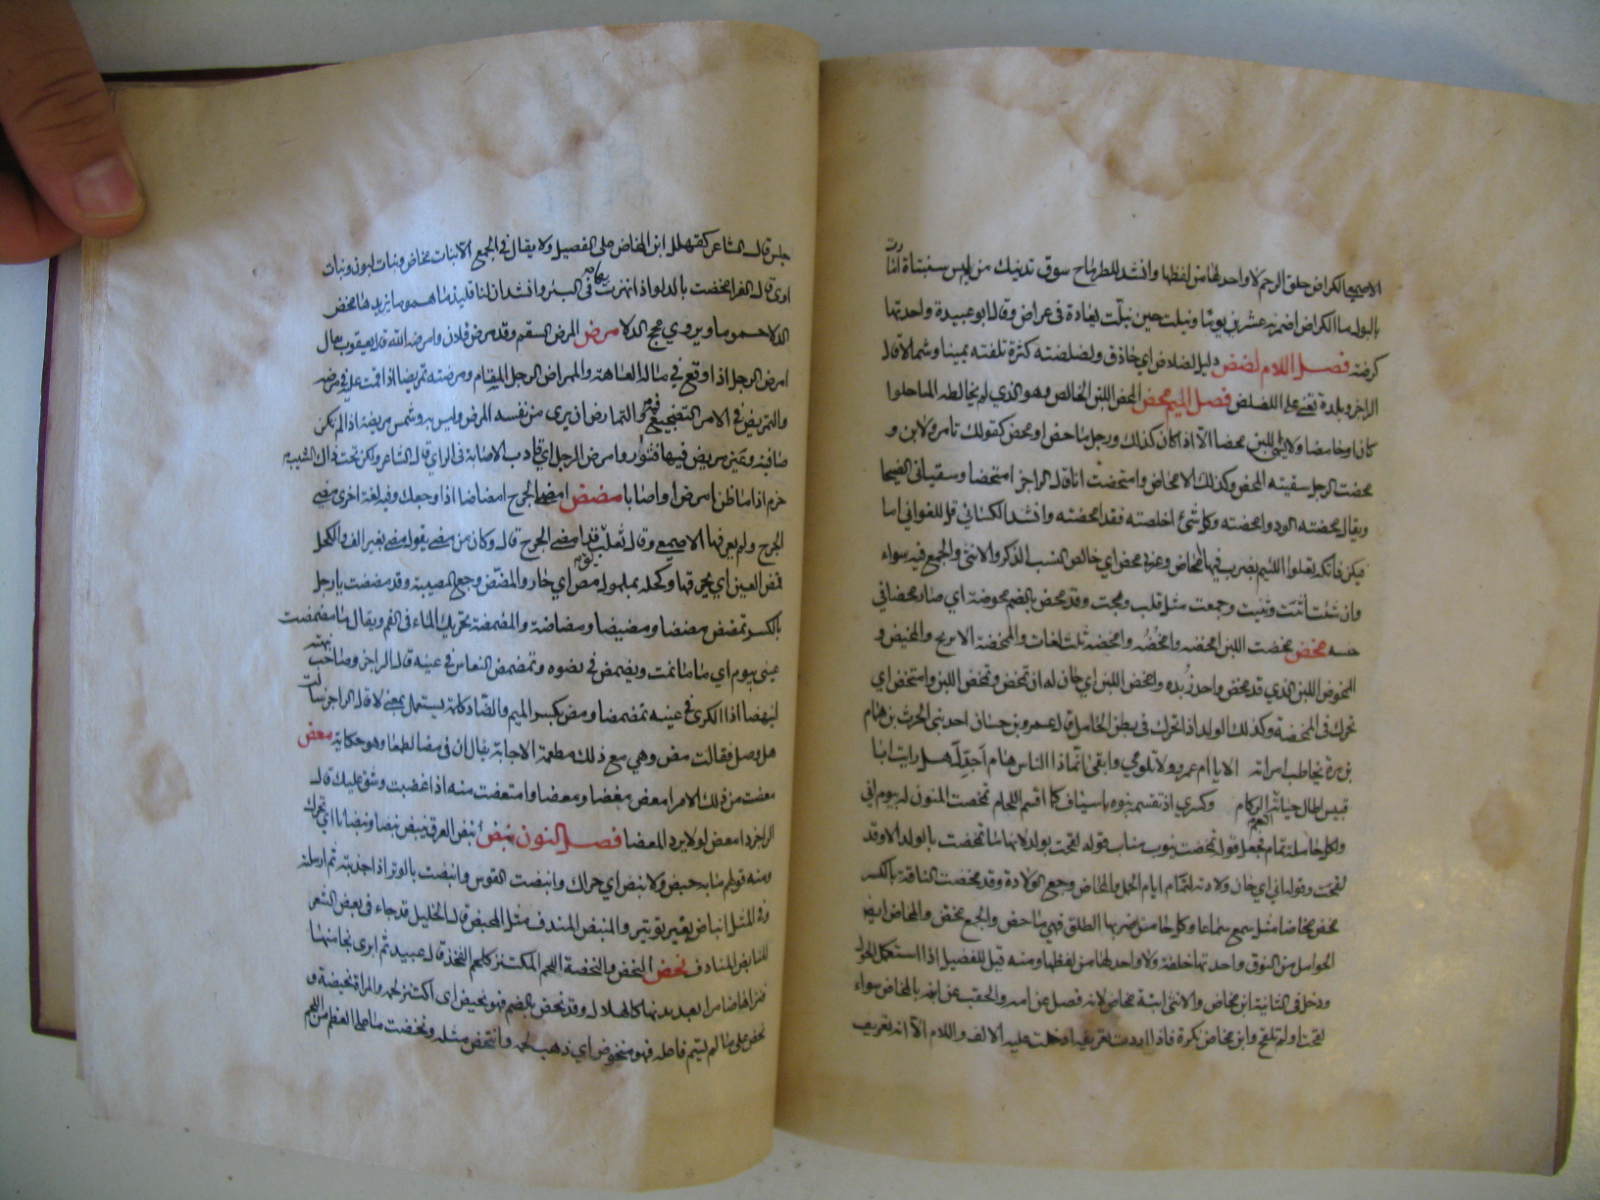 الاصمعي الكراض حلق الرحم لا واحد لها من لفظها وانشد للطرماح سوق تدنيك من لميس سبنتاة امارت
بالبول ماء الكراض اضمرته عشرين يوما ونيلت حين نيلت يعارة في عراض وقال ابو عبيدة واحدتها
كرضة فصل اللام لضض دليل لضلاض اي حاذق ولضلضته كثرة تلفته يمينا وشمالا قال
الراجز وبلدة تغبى على اللضلاض فصل الميم محض المحض اللبن الخالص وهو الذي لم يخالطه الماء حلوا
كان او حامضا ولا يسمى اللبن محضا الا اذا كان كذلك ورجل ماحض اي ذو محض كقولك تامر ولابن و
محضت الرجل سقيته المحض وكذلك الامحاض وامتحضت انا قال الراجز امتحضا وسقياني الضيحا
ويقال محضته الود وامحضته وكل شئ اخلصته فقد امحضته وانشد الكسائي قل للغواني اما
فيكن فاتكة تعلوا اللئيم بضرب فيه امحاض وعربي محض اي خالص النسب الذكر والانثى والجمع فيه سواء
وان شئت انثت وثنيت وجمعت مثل قلب وبحت وقد محض بالضم محوضة اي صار محضا في
حسبه مخض مخضت اللبن امخضه وامخضه وامخضه ثلث لغات والممخضة الابريج والمخيض و
الممخوض اللبن الذي قد مخض واخذ زبده وامخض اللبن اي حان له ان تمخض وتمخض اللبن وامتخض اي
تحرك في الممخضة وكذلك الولد اذا تحرك في بطن الحامل قال عمرو بن حسان احد بني الحرث بن همام
بن مرة يخاطب امراته الا يا ام عمرو لا تلومي وابقي انما ذا الناس هام اجدك هل رايت ابا
قبيس اطال حياته النعم الركام وكسرى اذ تقسمه بنوه باسياف كما اقتسم اللحام تمخضت المنون له بيوم انى
ولكل حاملة تمام فجعل قوله تمخضت ينوب مناب قوله لقحت بولد لانها ما تمخضت بالولد الا وقد
لقحت وقوله انى اي حان ولادته لتمام ايام الحمل والمخاض وجع الولادة وقد مخضت الناقة بالكسر
تمخض مخاضا مثل سمع سماعا وكل حامل ضربها الطلق فهي ماخض والجمع مخض والمخاض ايضا
الحوامل من النوق واحدتها خلفة ولا واحد لها من لفظها ومنه قيل للفصيل اذا استكمل الحول
ودخل في الثانية ابن مخاض والانثى ابنة مخاض لانه فصل عن امه والحقت امه بالمخاض سواء
لقحت او لم تلقح وابن مخاض نكرة فاذا اردت تعريفه ادخلت عليه الالف واللام الا انه تعريف
جنس قال الشاعر كفضل ابن المخاض على الفصيل ولا يقال في الجمع الا بنات مخاض وبنات لبون وبنات
اوى قال الفراء مخضت بالدلو اذا نهزت بها في البئر وانشد ان لنا قليذما هموما يزيدها مخض
الدلا جموما ويروى مخج الدلا مرض المرض السقم وقد مرض فلان وامرضه الله قال يعقوب يقال
امرض الرجل اذا وقع في ماله العاهة والممراض الرجل المسقام ومرضته تمريضا اذا قمت عليه في مرضه
والتمريض في الامر التضجيع فيه والتمارض ان يرى من نفسه المرض وليس به وشمس مريضة اذا لم تكن
صافية وعين مريض فيها فتور وامرض الرجل اي قارب الاصابة في الراي قال الشاعر ولكن تحت ذاك الشيب
حزم اذا ما ظن امرض او اصابا مضض امضني الجرح امضاضا اذا اوجعك وفيه لغة اخرى مضني
الجرح ولم يعرفها الاصمعي وقال ثعلب قد امضني الجرح قال وكان من مضى يقول مضني بغير الف والكحل
يمض العين اي يحرقها وكحله بملمول مض اي حار والمضض وجع المصيبة وقد مضضت يا رجل
بالكسر تمضض مضضا ومضيضا ومضاضة والمضمضة تحريك الماء في الفم ويقال ما مضمضت
عيني بنوم اي ما نامت وتمضمض في وضوه وتمضمض النعاس في عينه قال الراجز وصاحب نبهته
لينهضا اذا الكرى في عينه تمضمضا ومض بكسر الميم والضاد كلمة تستعمل بمعنى لا قال الراجز سالت
هل وصل فقالت مض وهي مع ذلك مطمعة في الاجابة يقال ان في مض لطمعا وهو حكاية معض
معضت من ذلك الامر امعض معضا ومعضا وامتعضت منه اذا غضبت وشق عليك قال
الراجز ذا معض لولا يرد المعضا فصل النون نبض نبض العرق ينبض نبضا ونبضانا اي تحرك
ومنه قولهم ما به حبض ولا نبض اي حراك وانبضت القوس وانبضت بالوتر اذا جذبته ثم ارسلته
وفي المثل انباض بغير توتير والمنبض المندف مثل المحبض قال الخليل قد جاء في بعض الشعر
المنابض المنادف نحض النحض والنحضة اللحم المكتنز كلحم الفخذ قال عبيد ثم ابرى نحاضها
فتراها ضامرا بعد بدنها كالهلال وقد نحض بالضم فهو نحيض اي اكتنز لحمه والمراة نحيضة و
نحض على ما لم يسم فاعله فهو منحوض اي ذهب لحمه وانتحض مثله ونحضت ما على العظم من اللحم